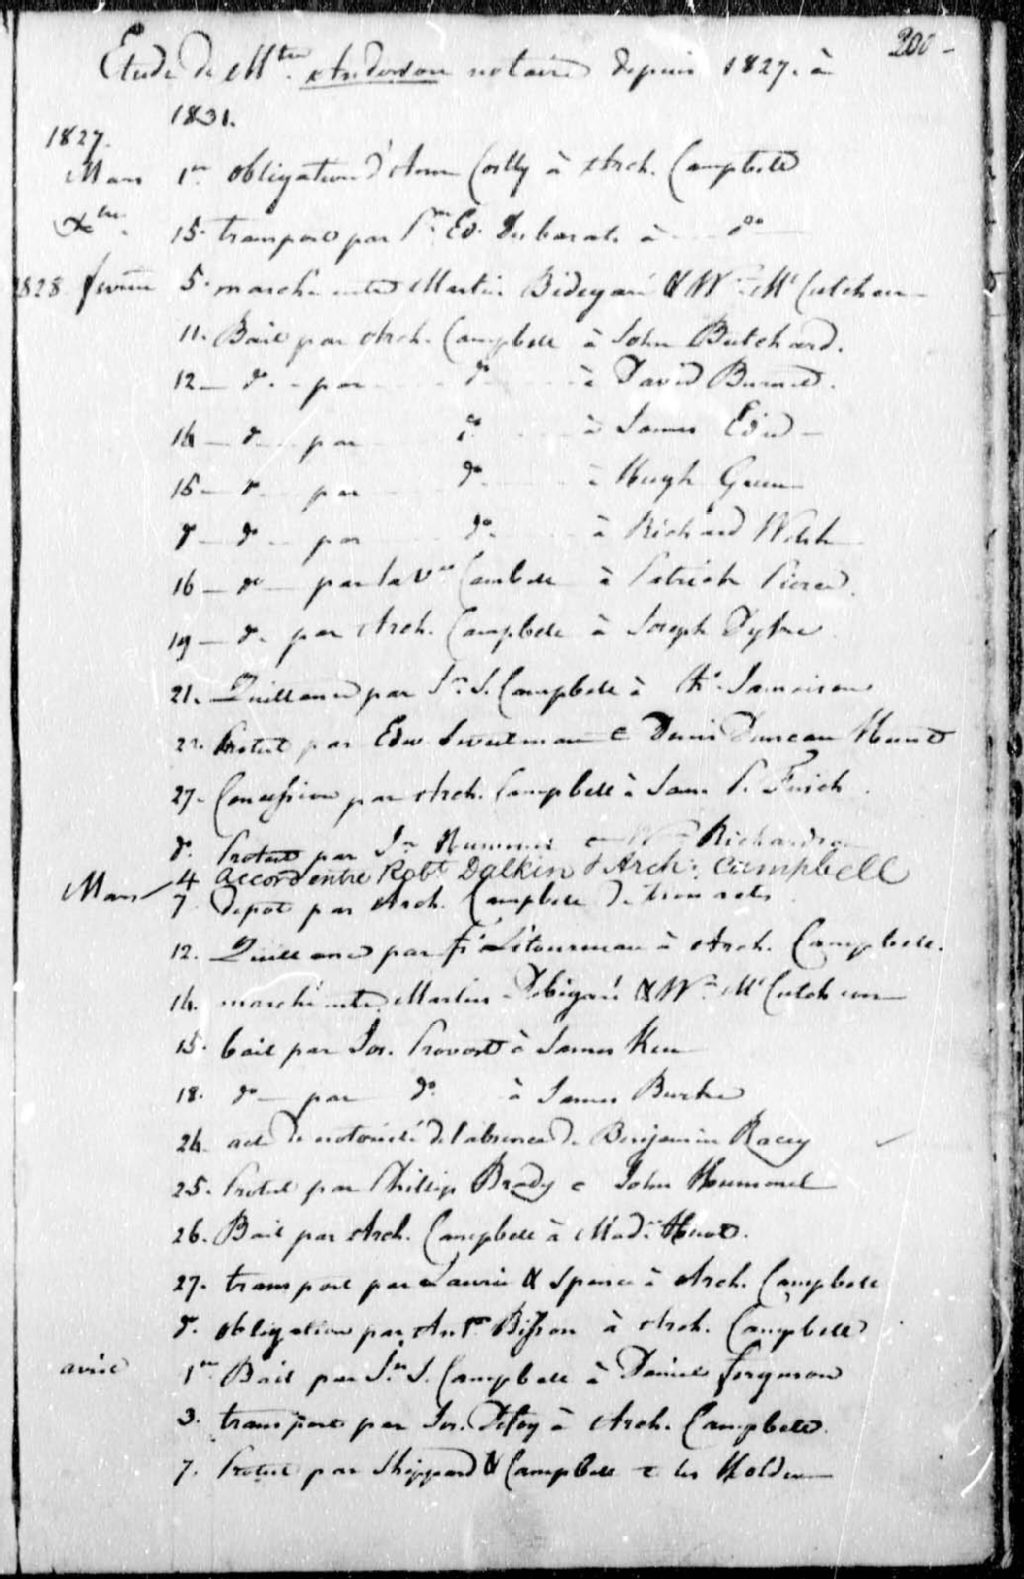 200-
Etude de Mtre Anderson notaire depuis 1827. à
1831.
1827.
Mars 1er obligation d'Ann à Arch. Campbell
Xbre. 15. transport par Ed. à do
1828 fevrier 5. marché entre Martin Bidegaré & Wm McCutcheon
11. Bail par Arch. Campbell à John Butchard.
12 - do - par do à David Burnet.
14 - do par do à James
15 - do par do à Hugh Green
do - do - par do à Richard Welsh
16 - do - par la Ve Cambell à Patrick Pierce.
19 - do par Arch. Campbell à Joseph Dyke
21. Quittance par Jn S. Campbell à Jameison
22. Protet par Edw Sweetman c Denis Duncan
27. Concession par Arch. Campbell à Sam. P.
do. Protest par Jn c Wm Richardson
Mars 4 accord entre Robt Dalkin & Arch: Campbell
7. depot par Arch. Campbell de trois actes
12. Quittance par Fr Létourneau à Arch. Campbell.
14. marché entre Martin Debigaré & Wm McCutcheon
15. bail par Jos. Provost à James Ker
18. do - par do à James Burke
24. acte de notoriété de l'absence de Benjamin Racey
25. Protet par Phillip Brady c John
26. Bail par Arch. Campbell à Made Huot.
27. transport par Laurie & Spence à Arch. Campbell
do. obligation par Ante Bisson à Arch. Campbell
avril 1er Bail par Jn S. Campbell à Daniel Ferguson
3. transport par Jos. Defoy à Arch. Campbell.
7. Protet par Sheppard & Campbell c les Holden